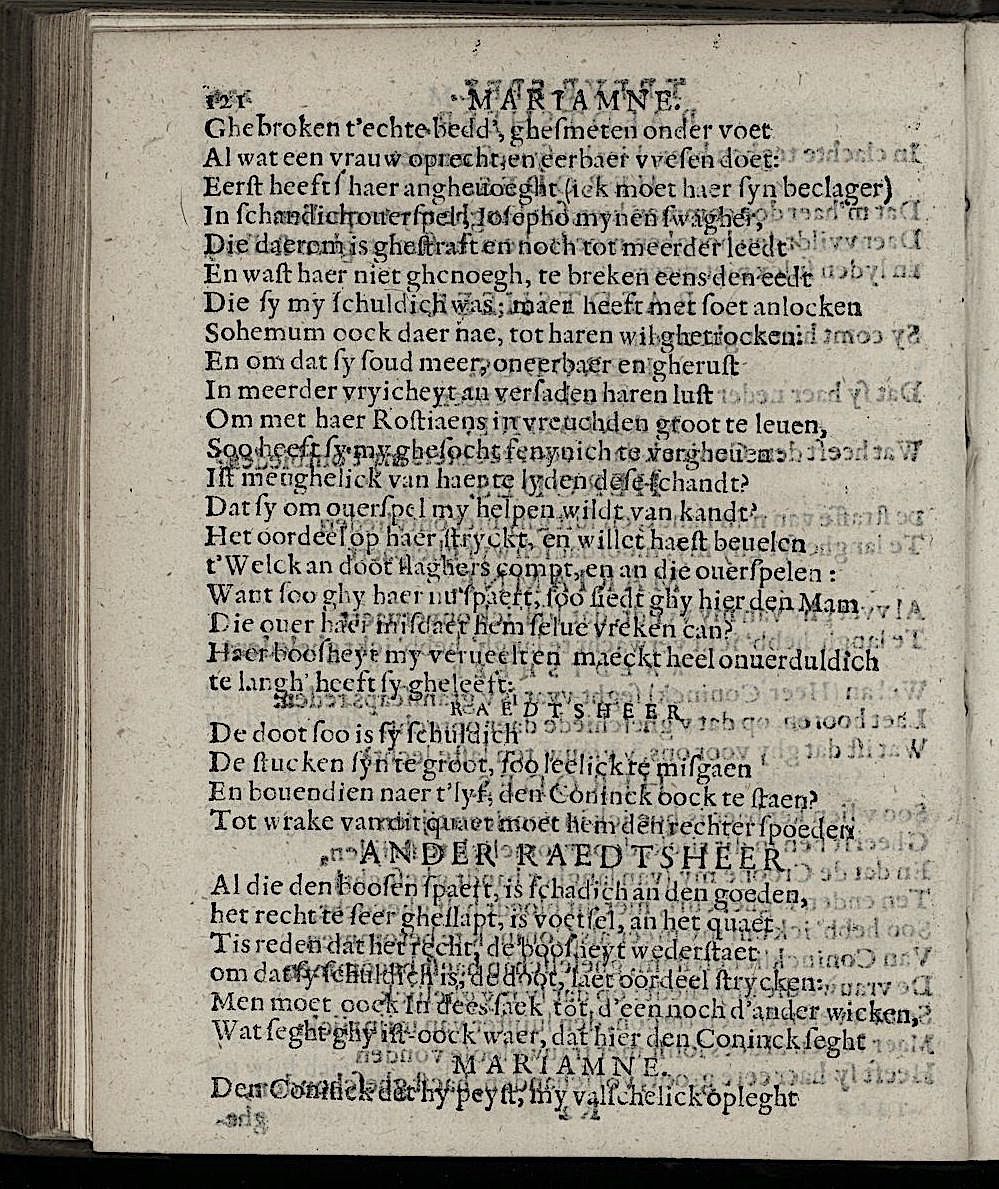 121 MARIAMNE.
Ghebroken t'echte bedd', ghesmeten onder voet
Al wat een vrauw oprecht, en eerbaer vvesen doet:
Eerst heeft s' haer angheuoeght (iek moet haer syn beclager)
In schandich ouerspel, Iosepho mynen swagher,
Die daerom is ghestraft en noch tot meerder leedt
En wast haer niet ghenoegh, te breken eens den eedt
Die sy my schuldich was; maer heeft met soet anlocken
Sohemum oock daer nae, tot haren wil ghetrocken:
En om dat sy soud meer, oneerbaer en gherust
In meerder vryicheyt an versaden haren lust
Om met haer Rostiaens in vreuchden groot te leuen,
Soo heeft sy my ghesocht fenynich te vergheuen:
Ist meughelick van haer te lyden dese schandt?
Dat sy om ouerspel my helpen wildt van kandt?
Het oordeel op haer stryckt, en willet haest beuelen
t'Welck an doot slaghers compt, en an die ouerspelen:
Want soo ghy haer nu spaert, soo siedt ghy hier den Mam
Die ouer haer misdaet hem selue vreken can?
Haer boosheyt my verueelt en maeckt heel onuerduldich
te langh' heeft sy gheleeft:
RAEDTSHEER
De doot soo is sy schuldich
De stucken syn te groot, soo leelick te misgaen
En bouendien naer t'lyf, den Coninck oock te staen?
Tot wrake van dit quaet moet hem den rechter spoeden
ANDER RAEDTSHEER
Al die den boosen spaert, is schadich an den goeden,
het recht te seer gheslapt, is voetsel, an het quaet
Tis reden dat het recht, de boosheyt wederstaet
om dat sy schuldich is, de doot, laet oordeel strycken:
Men moet oock In dees saek tot, d'een noch d'ander wicken,
Wat seght ghy ist oock waer, dat hier den Coninck seght
MARIAMNE.
Den Coninck dat hy peyst, my valschelick opleght